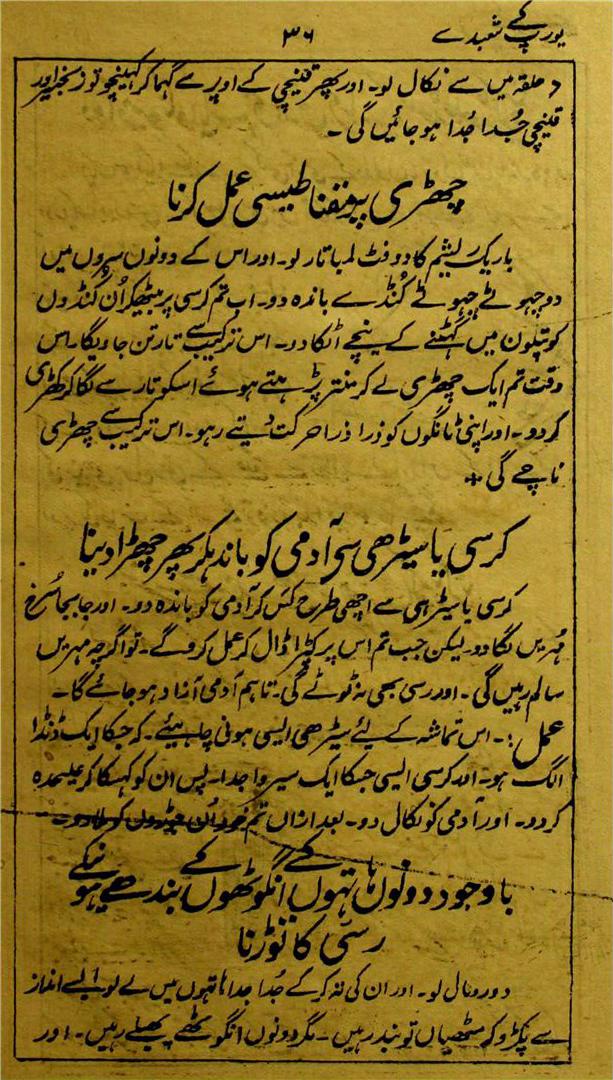 یورپ کے شعبدے
۳۶
حلقہ میں سے نکال لو۔ اور پھر قینچی کے اوپر سے گہما کر کہینچو تو زنجیر اور
قینچی جُدا جُدا ہو جائیں گی۔
چھڑی پر مقناطیسی عمل کرنا
باریک ریشم کا دو فٹ لمبا تار لو۔ اور اس کے دونوں سِروں میں
دو چہوٹے چہوٹے کُنڈے باندہ دو۔ اب تم کرسی پر بیٹھکر اُن کُنڈوں
کو پتلون میں گھٹنے کے نیچے اٹکا دو۔ اس ترکیب سے تار تن جاویگا۔ اس
وقت تم ایک چھڑی لے کر منتر پڑہتے ہوئے اسکو تار سے لگا کر کھڑی
کر دو۔ اور اپنی ٹانگوں کو ذرا ذرا حرکت دیتے رہو۔ اس ترکیب سے چھڑی
ناچے گی +
کرسی یا سیڑھی سے آدمی کو باندہکر پھر چھڑا دینا
کرسی یا سیڑہی سے اچھی طرح کس کر آدمی کو باندہ دو۔ اور جابجا سُرخ
مُہریں لگا دو۔ لیکن جب تم اس پر کپڑا ڈال کر عمل کرو گے۔ تو اگرچہ مہریں
سالم رہیں گی۔ اور رسی بھی نہ ٹوٹے گی۔ تاہم آدمی آزاد ہو جائے گا۔
عمل :۔ اس تماشہ کے لئے سیڑھی ایسی ہونی چاہیئے۔ کہ جسکا ایک ڈنڈا
الگ ہو۔ اور کرسی ایسی جسکا ایک سیروا جدا۔ پس ان کو کہسکا کر علیحدہ
کر دو۔ اور آدمی کو نکال دو۔ بعد ازاں تم خود اُن کو ملا دو۔
باوجود دونوں ہاتہوں کے انگوٹھوں کے بندھے ہونیکے
رسی کا توڑنا
دو رومال لو۔ اور ان کی تہ کر کے جُدا جدا ہاتہوں میں لے لو۔ ایسے انداز
سے پکڑو کہ مٹھیاں تو بند رہیں۔ مگر دونوں انگوٹھے پھیلے رہیں۔ اور